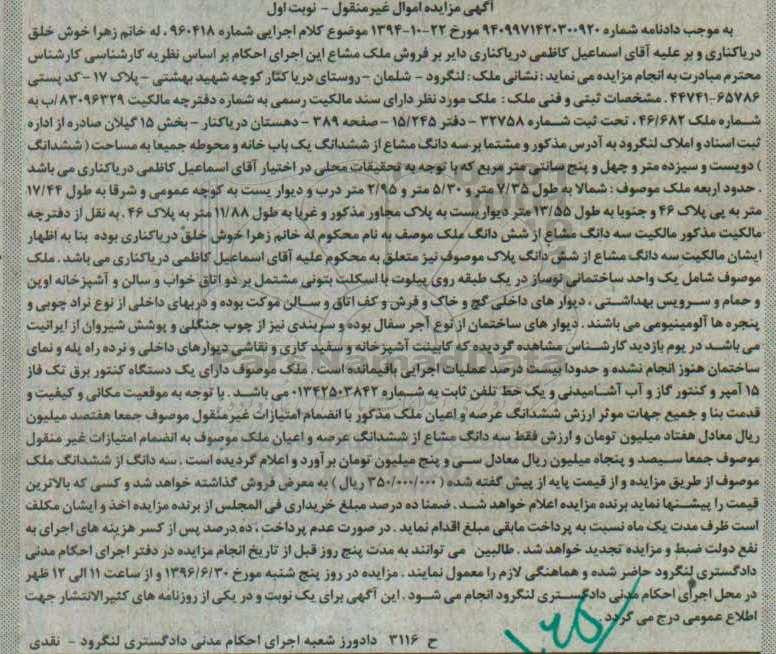 آگهی مزایده اموال غیر منقول - نوبت اول
به موجب دادنامه شماره ۹۴۰۹۹۷۱۴۲۰۳۰۰۹۲۰ مورخ ۲۲-۱۰-۱۳۹۴ موضوع کلام اجرایی شماره ۹۶۰۴۱۸ ، له خاتم زهرا خوش خلق
دریاکناری و بر علیه آقای اسماعیل کاظمی دریاکناری دایر بر فروش ملک مشاع این اجرای احکام بر اساس نظریه کارشناسی کارشناس
محترم مبادرت به انجام مزایده می نماید : نشانی ملک : لنگرود - شلمان - روستای دریا کنار کوچه شهید بهشتی - پلاک ۱۷ - کد پستی
۶۵۷۸۶-۴۴۷۴۱ . مشخصات ثبتی و فنی ملک : ملک مورد نظر دارای سند مالکیت رسمی به شماره دفترچه مالکیت ۸۳۰۹۶۳۲۹/ب به
شماره ملک ۴۶/۶۸۲ ، تحت ثبت شماره ۳۲۷۵۸ - دفتر ۱۵/۲۴۵ - صفحه ۳۸۹ - دهستان دریاکنار - بخش ۱۵ گیلان صادره از اداره
ثبت اسناد و املاک لنگرود به آدرس مذکور و مشتما بر سه دانگ مشاع از ششدانگ یک باب خانه و محوطه جمیعا به مساحت ( ششدانگ
) دویست و سیزده متر و چهل و پنج سانتی متر مربع که با توجه به تحقیقات محلی در اختیار آقای اسماعیل کاظمی دریاکناری می باشد
. حدود اربعه ملک موصوف : شمالا به طول ۷/۳۵ متر و ۵/۳۰ متر و ۲/۹۵ متر درب و دیوار یست به کوچه عمومی و شرقا به طول ۱۷/۴۴
متر به پی پلاک ۴۶ و جنوبا به طول ۱۳/۵۵ متر دیواریست به پلاک مجاور مذکور و غربا به طول ۱۱/۸۸ متر به پلاک ۴۶ . به نقل از دفترچه
مالکیت مذکور مالکیت سه دانگ مشاع از شش دانگ ملک موصف به نام محکوم له خانم زهرا خوش خلق دریاکناری بوده بنا به اظهار
ایشان مالکیت سه دانگ مشاع از شش دانگ پلاک موصوف نیز متعلق به محکوم علیه آقای اسماعیل کاظمی دریاکناری می باشد . ملک
موصوف شامل یک واحد ساختمانی نوساز در یک طبقه روی پیلوت با اسکلت بتونی مشتمل بر دو اتاق خواب و سالن و آشپزخانه اوپن
و حمام و سرویس بهداشتی ، دیوار های داخلی گچ و خاک و فرش و کف اتاق و سالن موکت بوده و دربهای داخلی از نوع نراد چوبی و
پنجره ها آلومینیومی می باشند . دیوار های ساختمان از نوع آجر سفال بوده و سربندی نیز از چوب جنگلی و پوشش شیروان از ایرانیت
می باشد در یوم بازدید کارشناس مشاهده گردیده که کابینت آشپزخانه و سفید کاری و نقاشی دیوارهای داخلی و نرده راه پله و نمای
ساختمان هنوز انجام نشده و حدودا بیست درصد عملیات اجرایی باقیمانده است . ملک موصوف دارای یک دستگاه کنتور برق تک فاز
۱۵ آمپر و کنتور گاز و آب آشامیدنی و یک خط تلفن ثابت به شماره ۰۱۳۴۲۵۰۳۸۴۲ می باشد . با توجه به موقعیت مکانی و کیفیت و
قدمت بنا و جمیع جهات موثر ارزش ششدانگ عرصه و اعیان ملک مذکور با انضمام امتیازات غیر منقول موصوف جمعا هفتصد میلیون
ریال معادل هفتاد میلیون تومان و ارزش فقط سه دانگ مشاع از ششدانگ عرصه و اعیان ملک موصوف به انضمام امتیازات غیر منقول
موصوف جمعا سیصد و پنجاه میلیون ریال معادل سی و پنج میلیون تومان بر آورد و اعلام گردیده است . سه دانگ از ششدانگ ملک
موصوف از طریق مزایده و از قیمت پایه از پیش گفته شده ( ۳۵۰/۰۰۰/۰۰۰ ریال ) به معرض فروش گذاشته خواهد شد و کسی که بالاترین
قیمت را پیشنها نماید برنده مزایده اعلام خواهد شد . ضمنا ده درصد مبلغ خریداری فی المجلس از برنده مزایده اخذ و ایشان مکلف
است ظرف مدت یک ماه نسبت به پرداخت مابقی مبلغ اقدام نماید . در صورت عدم پرداخت ، ده درصد پس از کسر هزینه های اجرای به
نفع دولت ضبط و مزایده تجدید خواهد شد . طالبین می توانند به مدت پنج روز قبل از تاریخ انجام مزایده در دفتر اجرای احکام مدنی
دادگستری لنگرود حاضر شده و هماهنگی لازم را معمول نمایند . مزایده در روز پنج شنبه مورخ ۱۳۹۶/۶/۳۰ و از ساعت ۱۱ الی ۱۲ ظهر
در محل اجرای احکام مدنی دادگستری لنگرود انجام می شود . این آگهی برای یک نوبت و در یکی از روزنامه های کثیرالانتشار جهت
اطلاع عمومی درج می گردد .
ح ۳۱۱۶ دادورز شعبه اجرای احکام مدنی دادگستری لنگرود - نقدی